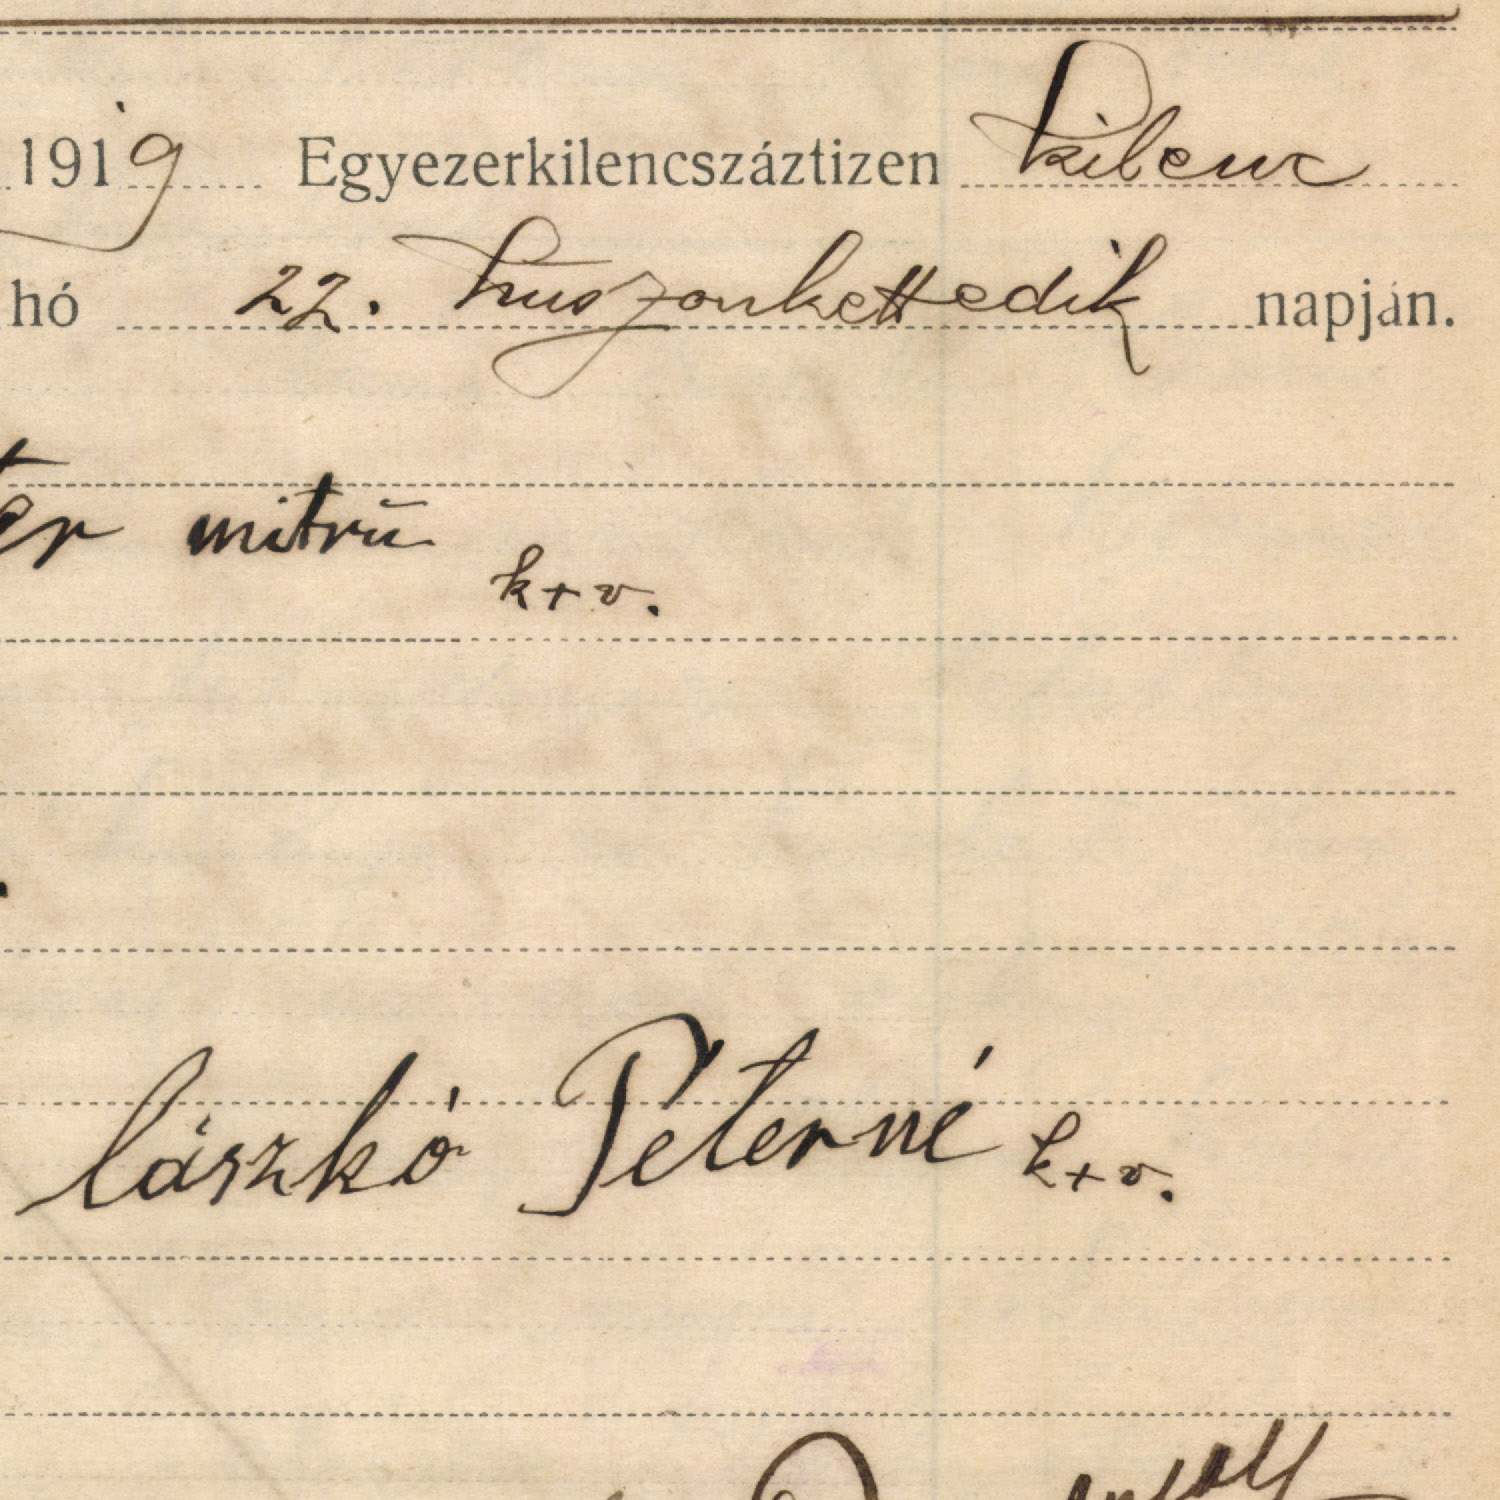 1919 Egyezerkilencszáztizen kilenc
hó 22. huszonkettedik napján.
mitrŭ k+v.
lászkó Péterné k+v.